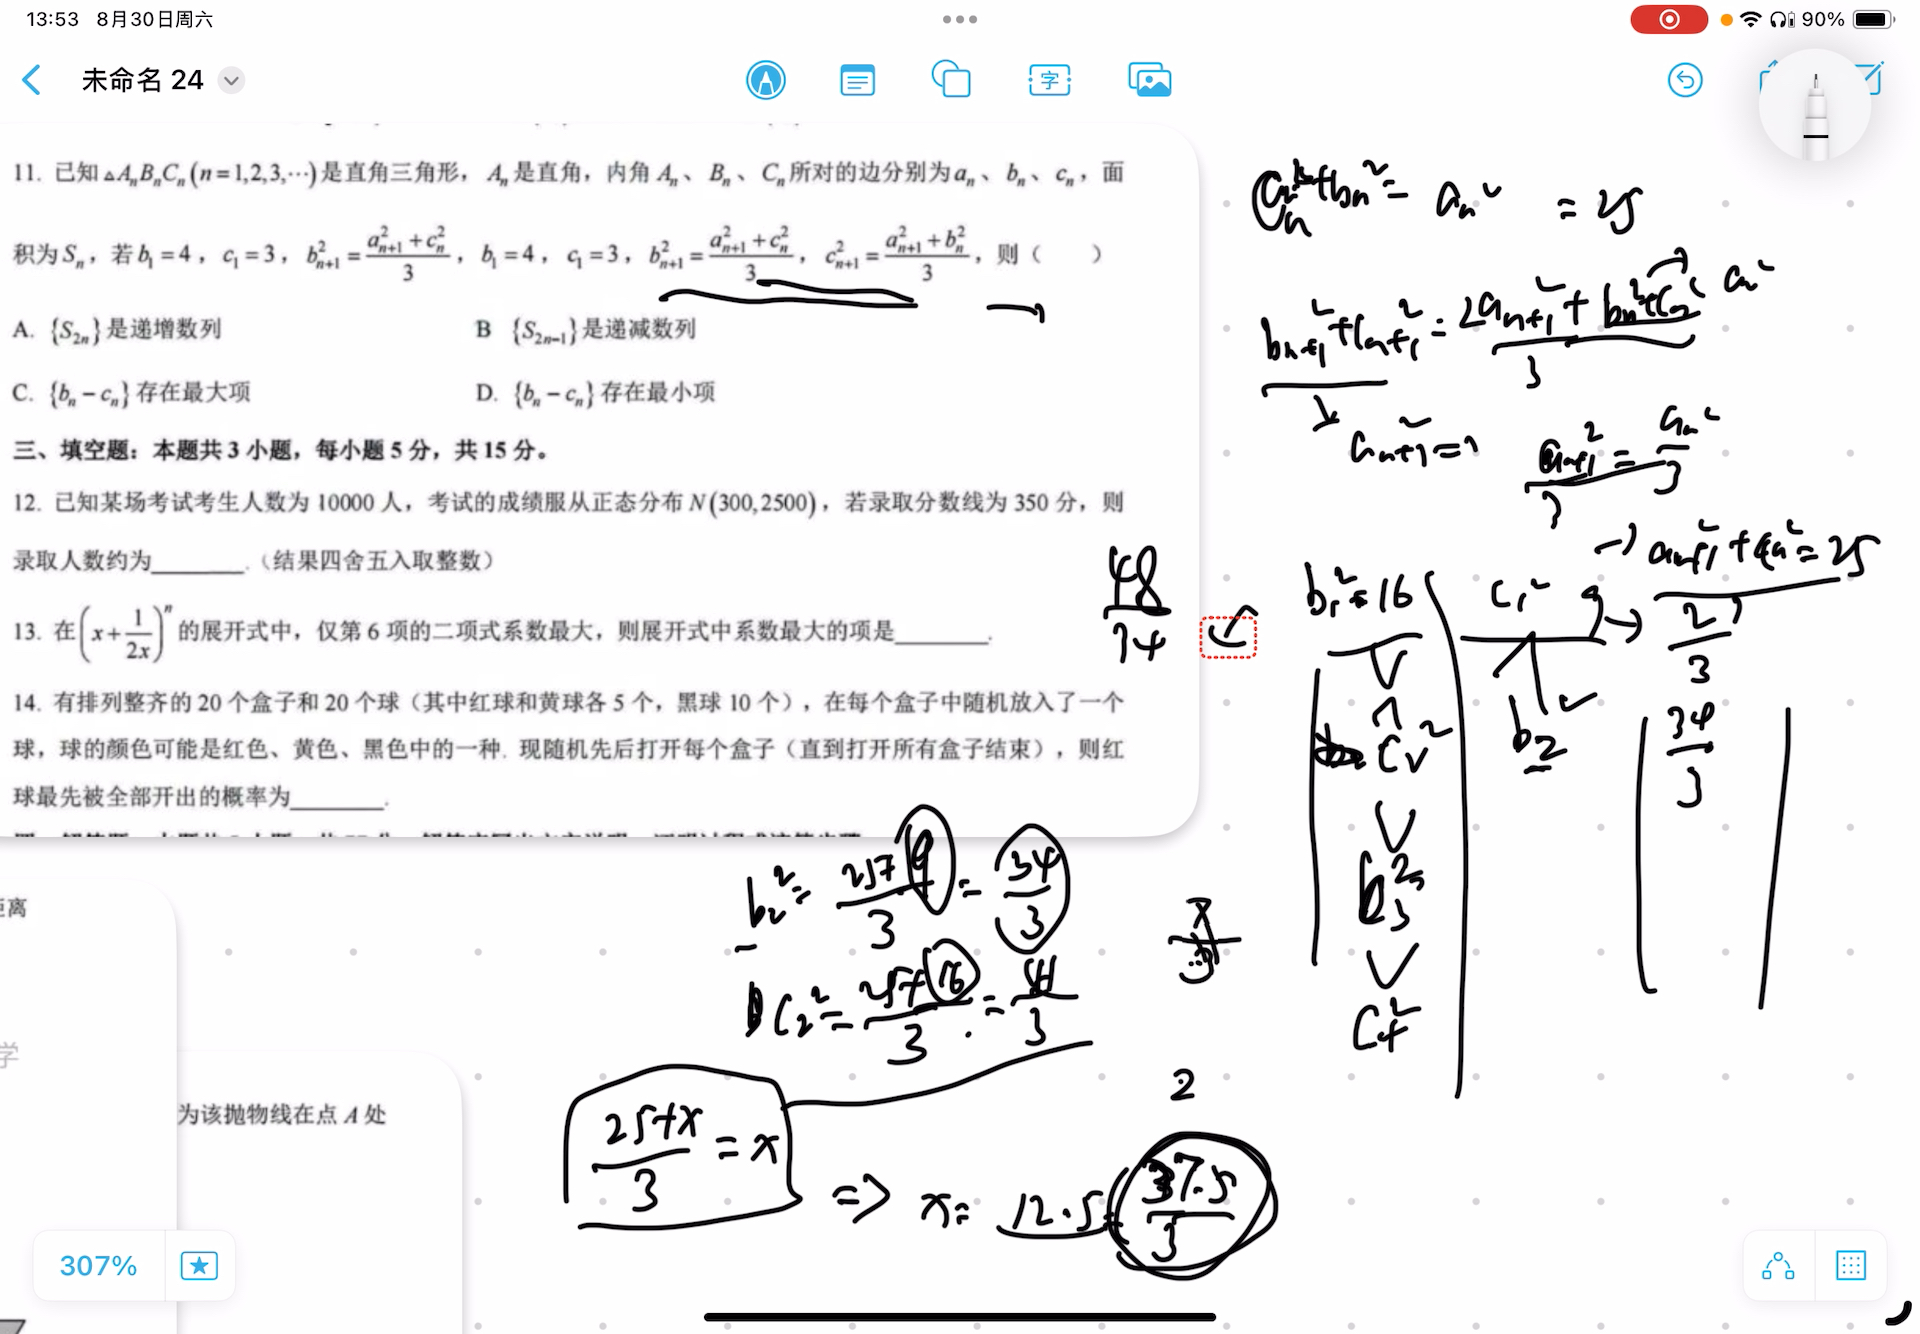 13:53 8月30日周六
90%
未命名 24
字
11. 已知△AₙBₙCₙ(n=1,2,3,⋯)是直角三角形，Aₙ是直角，内角Aₙ、Bₙ、Cₙ所对的边分别为aₙ、bₙ、cₙ，面
积为Sₙ，若b₁=4，c₁=3，b²ₙ₊₁=(a²ₙ₊₁+c²ₙ)/3，b₁=4，c₁=3，b²ₙ₊₁=(a²ₙ₊₁+c²ₙ)/3，c²ₙ₊₁=(a²ₙ₊₁+b²ₙ)/3，则（ ）
A. {S₂ₙ}是递增数列 B {S₂ₙ₋₁}是递减数列
C. {bₙ−cₙ}存在最大项 D. {bₙ−cₙ}存在最小项
三、填空题：本题共3小题，每小题5分，共15分。
12. 已知某场考试考生人数为10000人，考试的成绩服从正态分布N(300,2500)，若录取分数线为350分，则
录取人数约为______.（结果四舍五入取整数）
13. 在(x+1/2x)ⁿ的展开式中，仅第6项的二项式系数最大，则展开式中系数最大的项是______.
14. 有排列整齐的20个盒子和20个球（其中红球和黄球各5个，黑球10个），在每个盒子中随机放入了一个
球，球的颜色可能是红色、黄色、黑色中的一种. 现随机先后打开每个盒子（直到打开所有盒子结束），则红
球最先被全部开出的概率为______.
距离
学
为该抛物线在点A处
307%
+bₙ²= aₙ² =25
bₙ₊₁²+cₙ₊₁²=(2aₙ₊₁²+bₙ²+cₙ²)/3 aₙ²
aₙ₊₁²=
aₙ₊₁²/3=aₙ²/3
→ aₙ₊₁²=aₙ²=25
48/34
b₁²=16 c₁² 9 →
2/3
34/3
b₂
c₂²
b₃²
c₄²
b₂²=(25+9)/3=34/3
c₂²=(25+16)/3=41/3
2
(25+x)/3=x ⇒ x=12.5=37.5/3